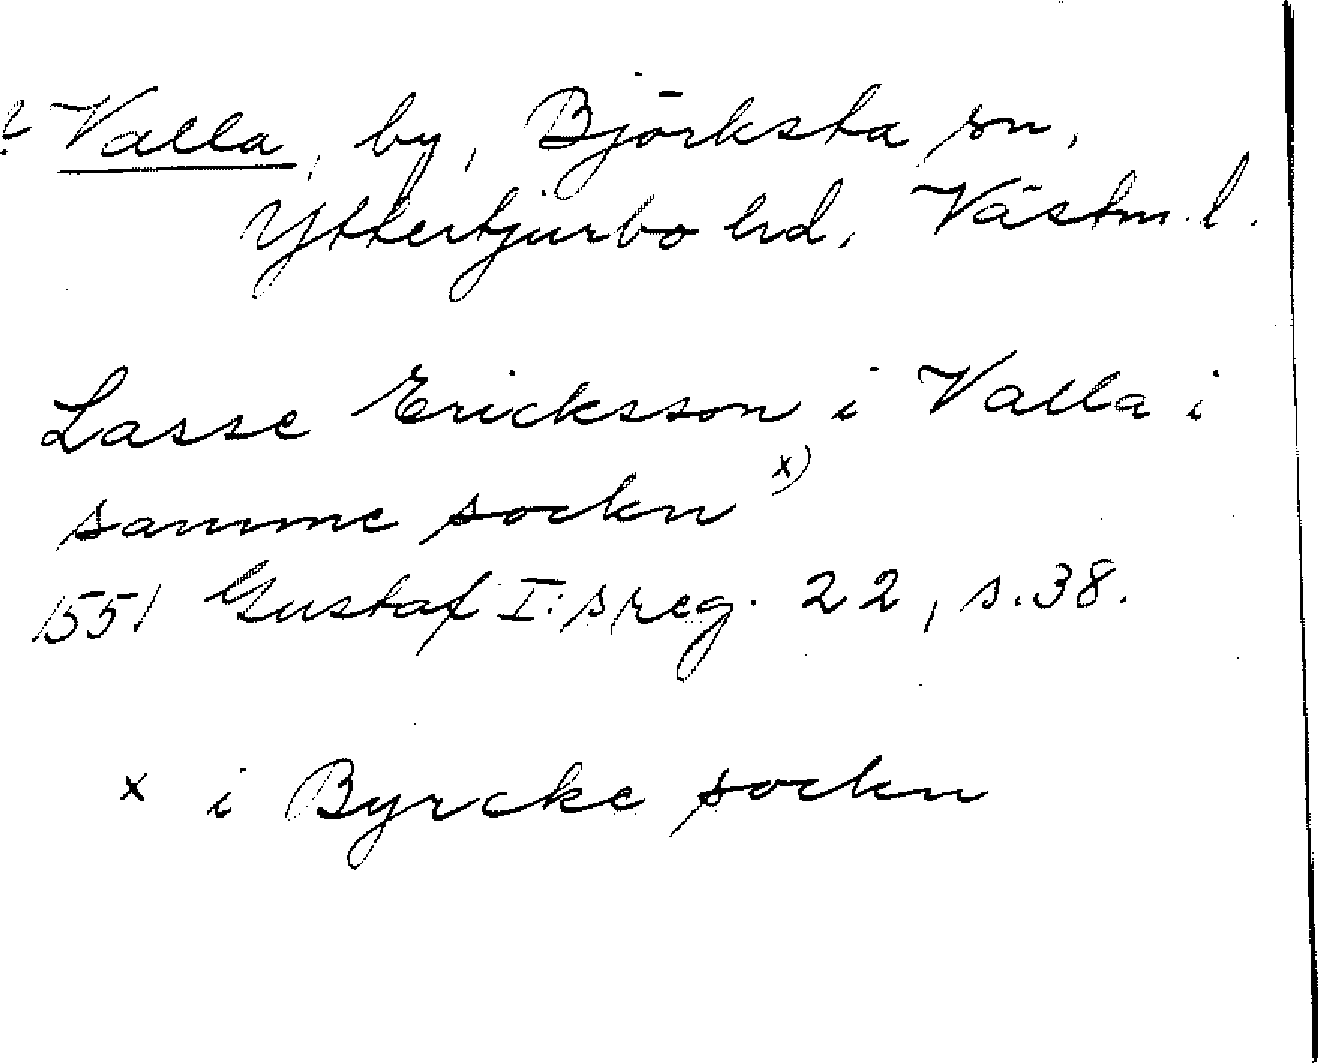 ? Valla, by, Björksta sn,
Yttertjurbo hd, Västm. l.
Lasse Ericksson i Valla i
samme sockn x)
1551 Gustaf I:s reg. 22, s. 38.
x i Byrcke sockn